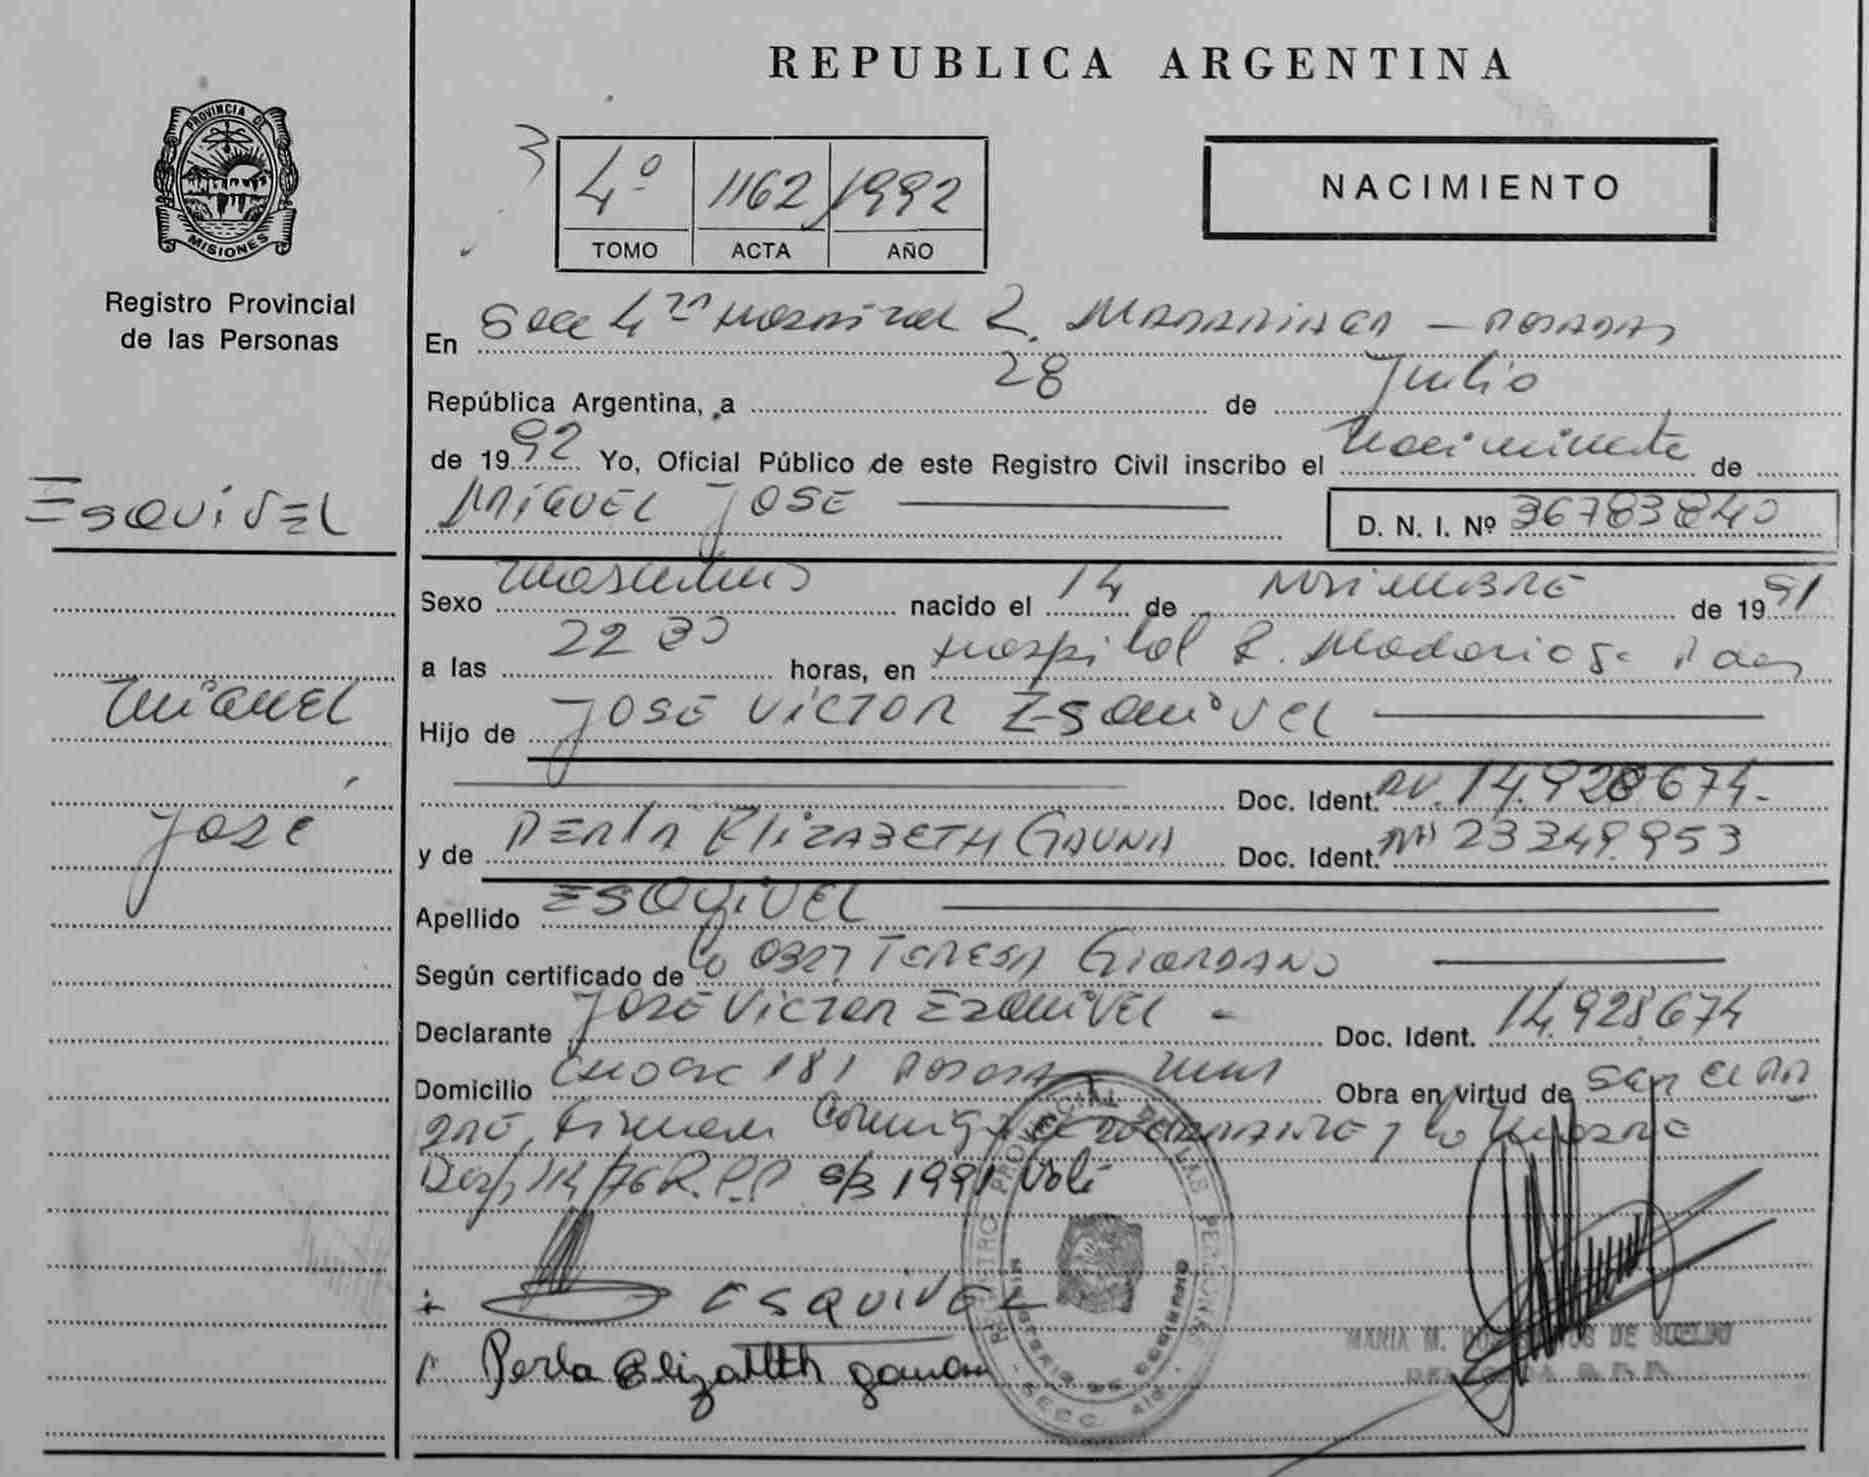 REPUBLICA ARGENTINA
PROVINCIA D
MISIONES
Registro Provincial
de las Personas
NACIMIENTO
3
4º 1162 1992
TOMO ACTA AÑO
En Secc 4ta Hospital R. MADARIAGA — POSADAS
República Argentina, a 28 de Julio
de 1992 Yo, Oficial Público de este Registro Civil inscribo el Nacimiento de
MIGUEL JOSE
D. N. I. Nº 36783840
ESQUIVEL
MIGUEL
JOSE
Sexo Masculino nacido el 14 de NOVIEMBRE de 1991
a las 22 30 horas, en Hospital R. Madariaga Pdas
Hijo de JOSE VICTOR ESQUIVEL
Doc. Ident. 14.928.674.
y de PERLA ELIZABETH GAUNA Doc. Ident. 23249.953
Apellido ESQUIVEL
Según certificado de TERESA GIORDANO
Declarante JOSE VICTOR ESQUIVEL - Doc. Ident. 14.928.674
Domicilio 181 Obra en virtud de
Firman Conmigo el DECLARANTE y la
114/76 R.P.P s/3 1991 Vale
ESQUIVEL
Perla Elizabeth gauna
REGISTRO PROVINCIAL DE LAS PERSONAS
MINISTERIO DE GOBIERNO
MARIA M. DE